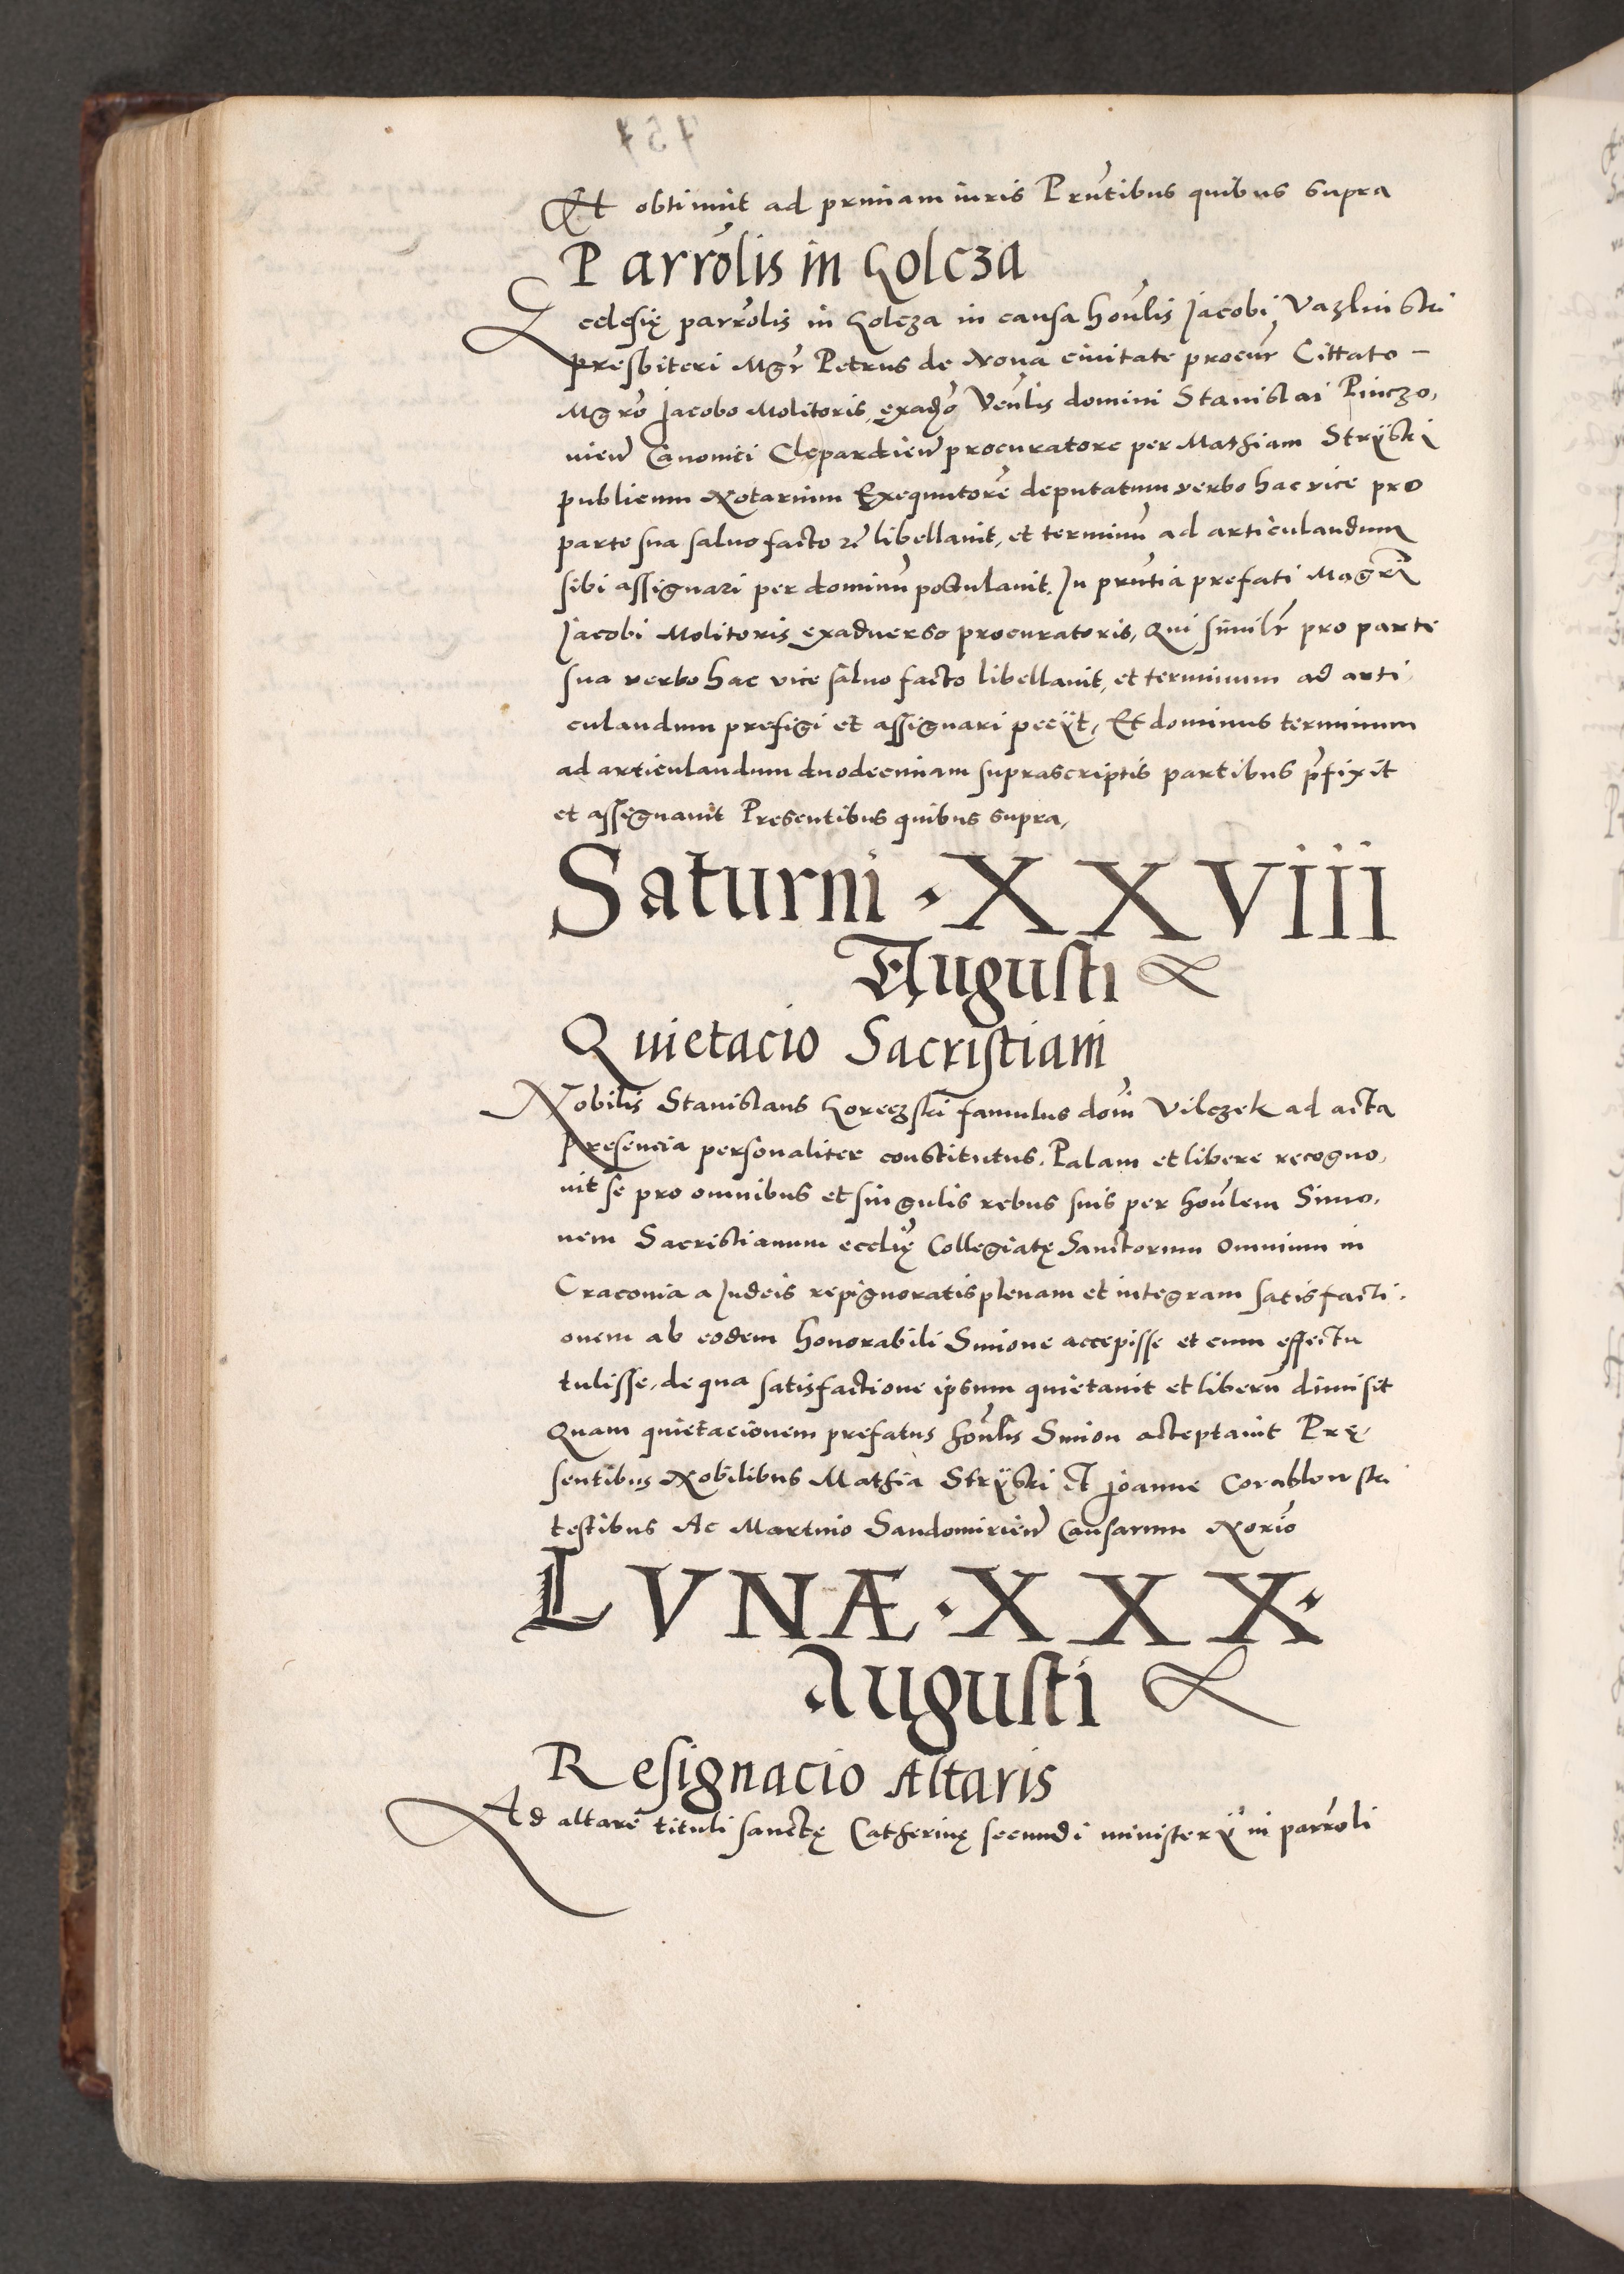 Et obtinuit ad primam iuris Prntibus quibus supra
Parrolis in Golcza
Ecclesię parrolis in Golcza in causa honlis Jacobi Vazlinski
presbiteri Mgr Petrus de Nova civitate procur Cittato -
Mgro Jacobo Molitoris, exadο Venlis domini Stanislai Pinczo,
vien Canonici Clepardien procuratore per Mathiam Strÿski
publicum Notarium Exequutorē deputatum verbo hac vice pro
parte sua salvo facto rē libellavit, et terminū ad articulandum
sibi assignari per dominū postulavit. In prntia prefati Magrī
Jacobi Molitoris exadverso procuratoris, Qui similr pro parte
sua verbo hac vice salvo facto libellavit, et terminum ad arti,
culandum prefigi et assignari peciit, Et dominus terminum
ad articulandum duodecimam suprascriptis partibus pfixit
et assignavit Presentibus quibus supra,
Saturni · XXVIII
Augusti
Quietacio Sacristiani
Nobilis Stanislaus Goreczski famulus doni Vilczek ad acta
presencia personaliter constitutus. Palam et libere recogno,
vit se pro omnibus et singulis rebus suis per honlem Simo,
nem Sacristianum ecclię Collegiatę Sanctorum Omnium in
Cracovia a Judeis repignoratis plenam et integram satisfacti,
onem ab eodem honorabili Simone accepisse et cum effectu
tulisse, de qua satisfactione ipsum quietavit et liberū dimisit
Quam quietacionem prefatus honlis Simon acceptavit Prę,
sentibus Nobilibus Mathia Strÿski Et Joanne Corablewski
testibus Ac Martino Sandomirien Causarum Norio
LVNÆ · XXX ·
Augusti
Resignacio Altaris
Ad altare tituli sanctę Catherinę secundi ministerÿ in parroli